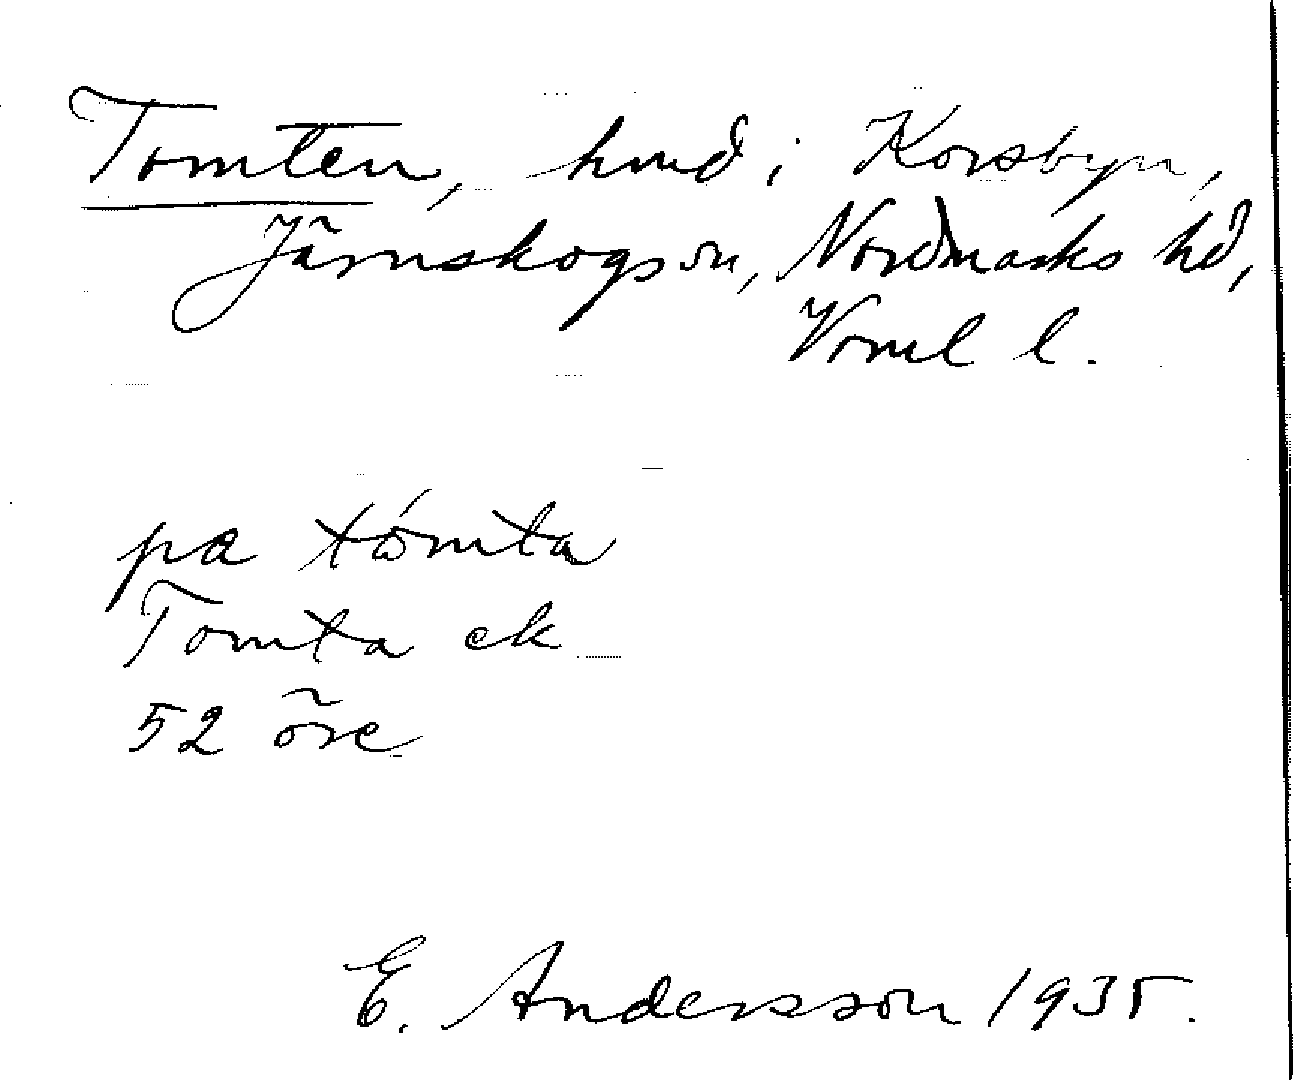 Tomten, hmd i Korsbyn,
Järnskogs sn, Nordmarks hd,
Vrml l.
pa tómta
Tomta ek
52 öre
E. Andersson 1935.